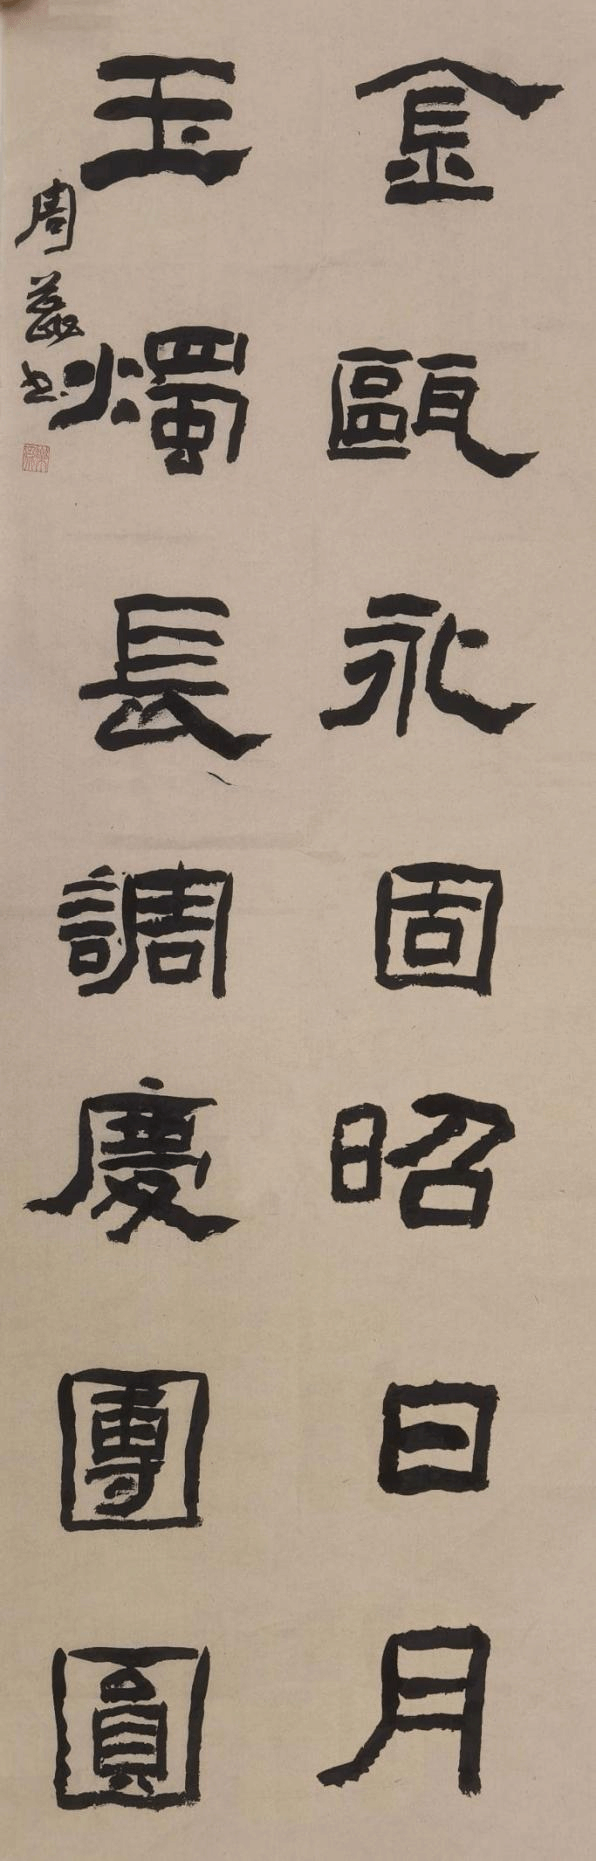 金甌永固昭日月
玉燭長調慶團圓
周蕊书